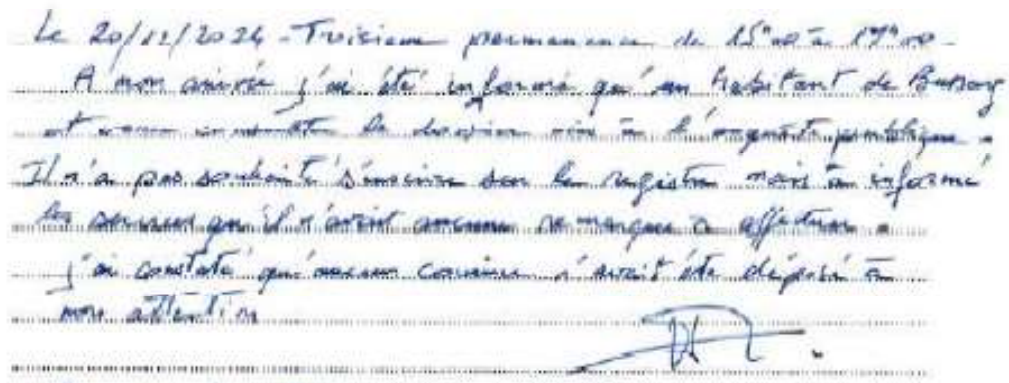 Le 20/11/2024 - Troisieme permanence de 15h00 à 17h00 -
A mon arrivée j'ai été informé qu'un habitant de
est venu consulter le dossier mis à l'enquête publique.
Il n'a pas souhaité s'inscrire sur le registre mais a informé
les services qu'il n'avait aucune remarque à effectuer.
j'ai constaté qu'aucun courrier n'avait été déposé à
mon attention